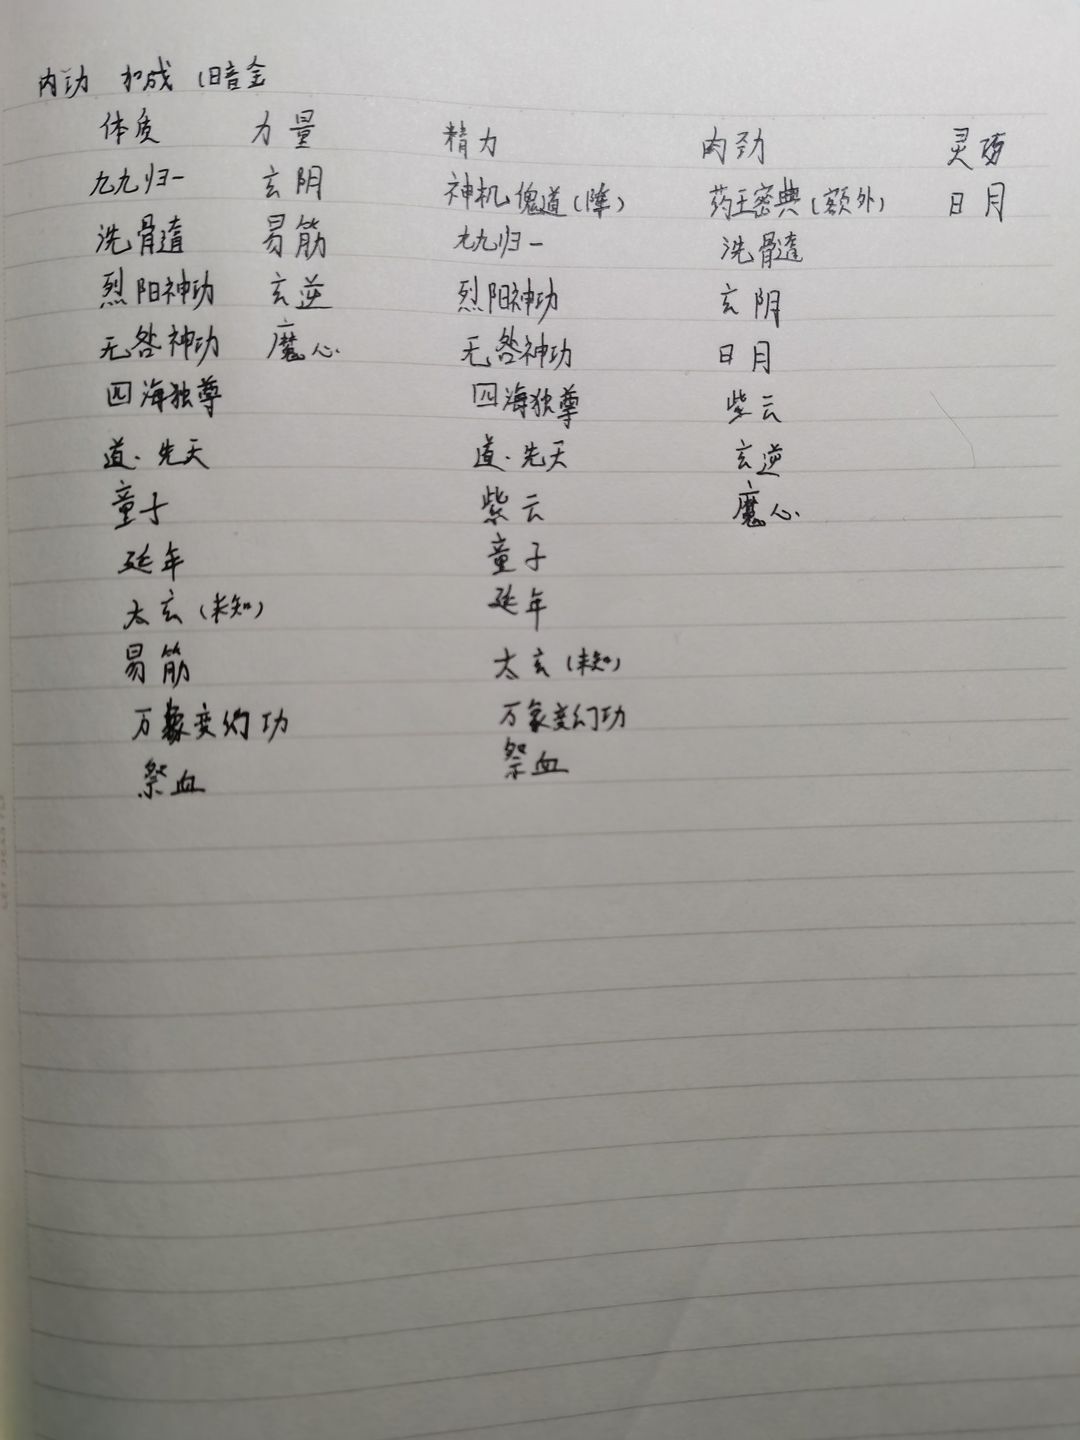 内功 加成 旧暗金
体质 力量 精力 内劲 灵巧
九九归一 玄阴 神机傀道(阵) 药王密典(额外) 日月
洗骨髓 易筋 九九归一 洗骨髓
烈阳神功 玄逆 烈阳神功 玄阴
无咎神功 魔心 无咎神功 日月
四海独尊 四海独尊 紫云
道·先天 道·先天 玄逆
童子 紫云 魔心
延年 童子
太玄(未知) 延年
易筋 太玄(未知)
万象变幻功 万象变幻功
祭血 祭血